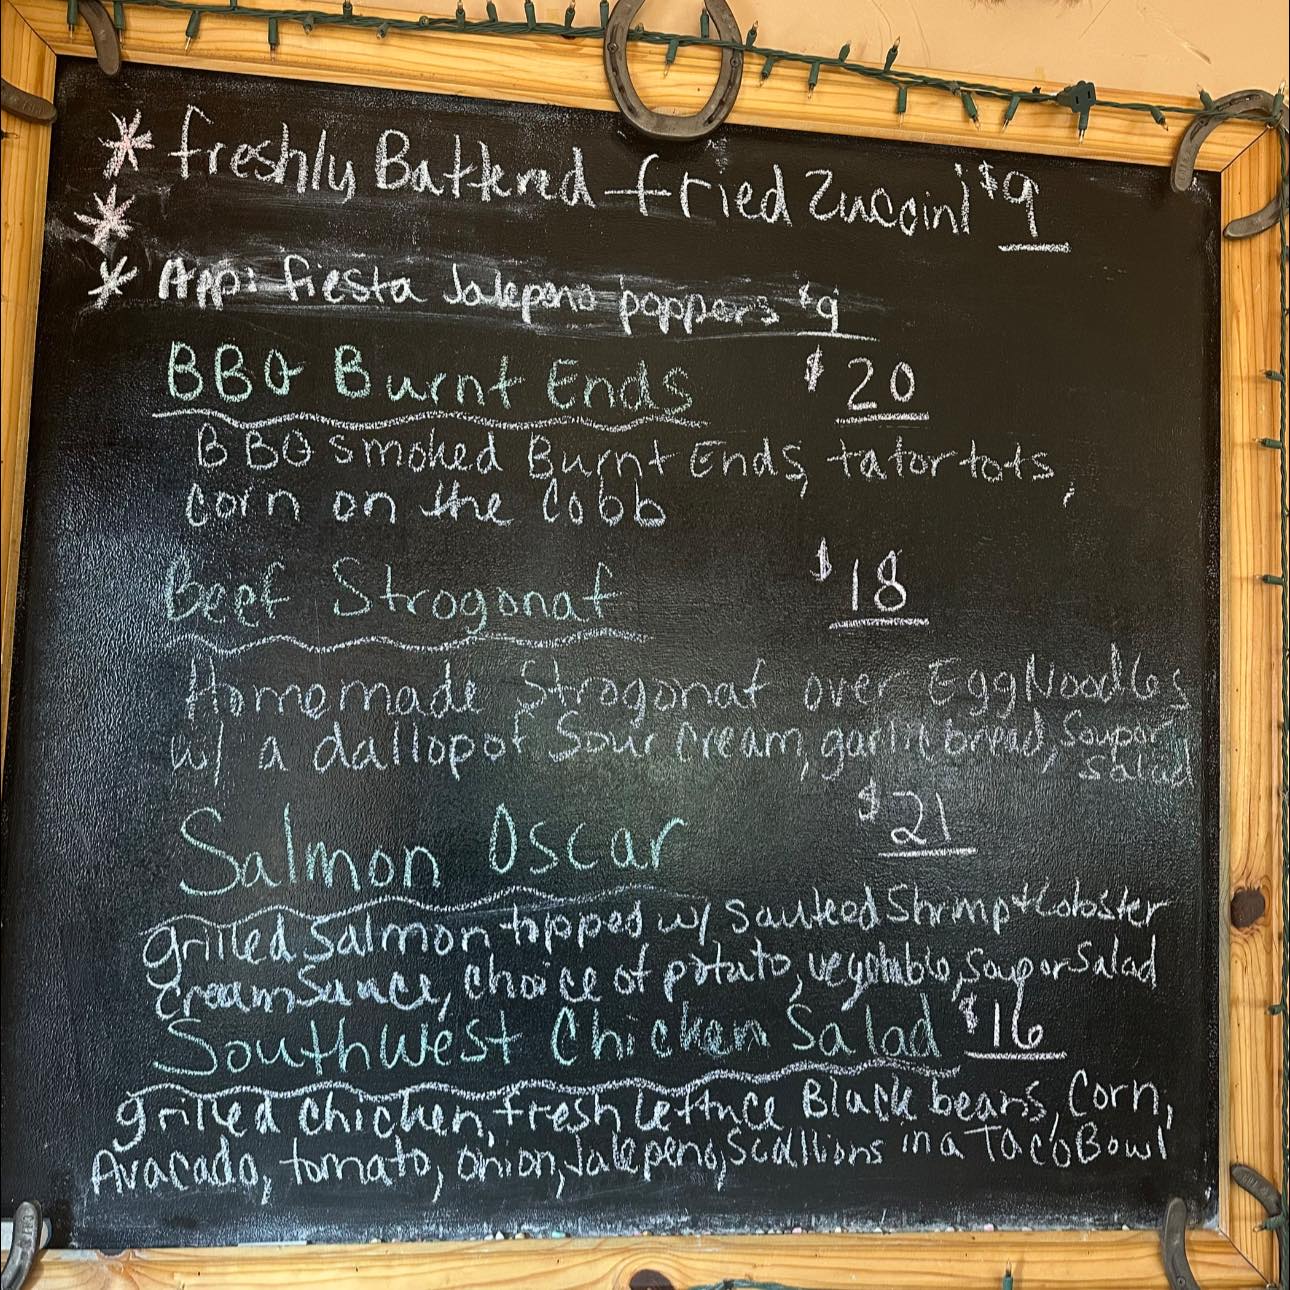 * freshly Battered fried Zuccini $9
*
* App: fiesta Jalepeno poppers $9
BBQ Burnt Ends $20
BBQ smoked Burnt Ends, tator tots,
corn on the cobb
Beef Strogonaf $18
Homemade Strogonaf over Egg Noodles
w/ a dallop of Sour cream, garlic bread, Soup or
Salad
Salmon Oscar $21
grilled Salmon topped w/ sauteed Shrimp + Lobster
cream sauce, choice of potato, vegetable, soup or Salad
Southwest Chicken Salad $16
grilled chicken, fresh lettuce Black beans, Corn,
Avacado, tomato, onion, Jalepeno, Scallions in a Taco Bowl